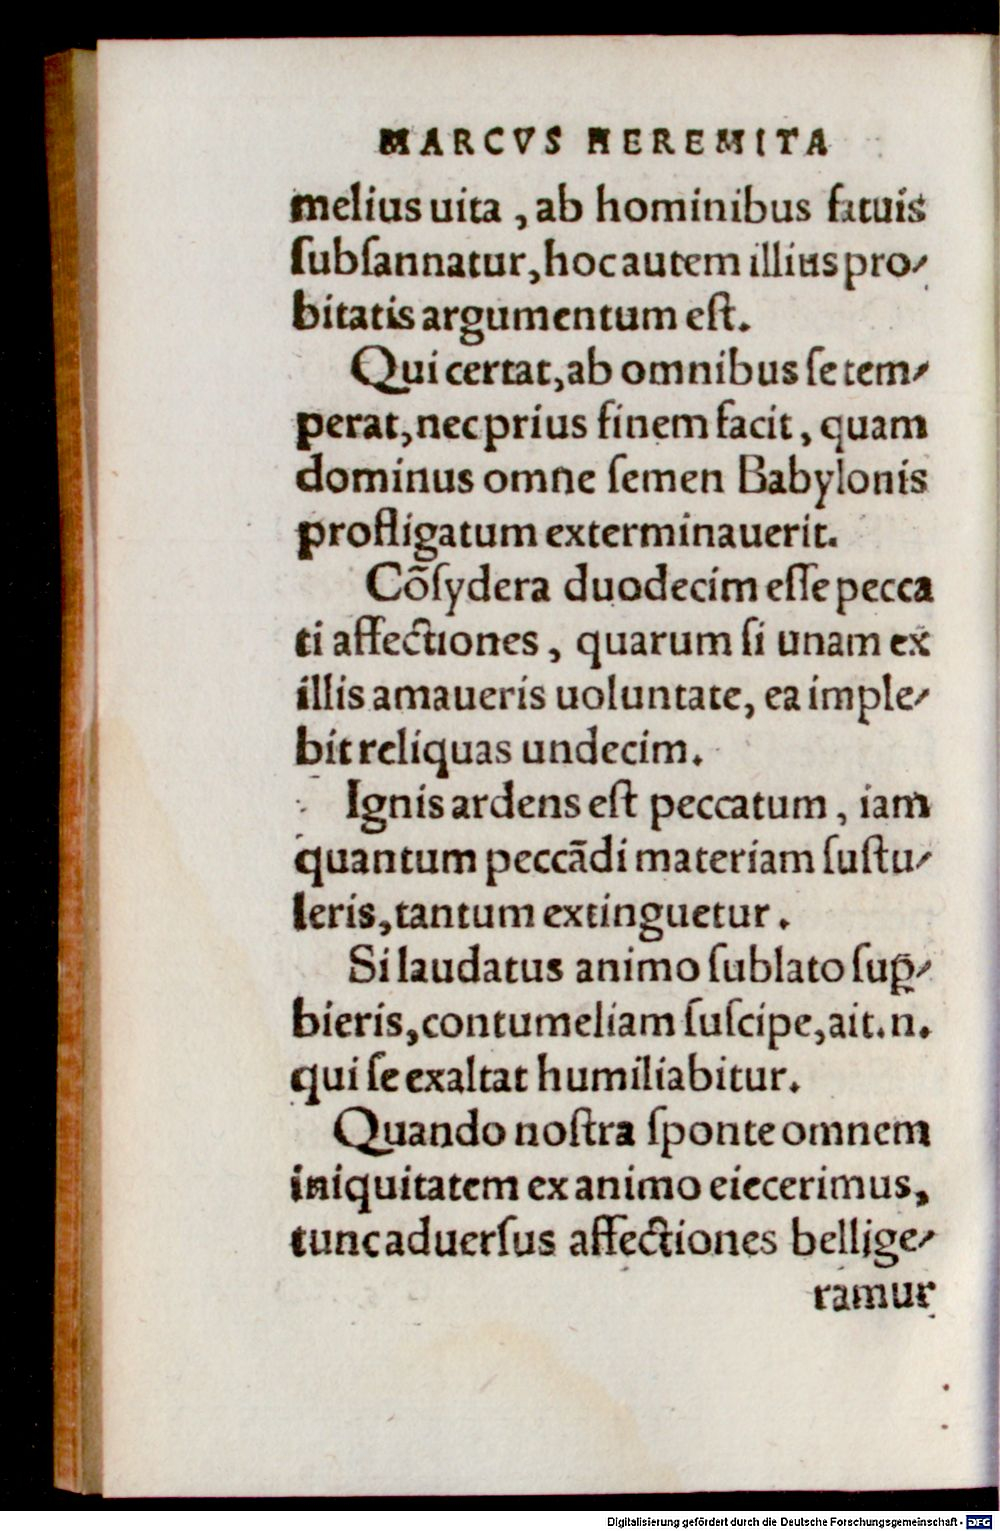 MARCVS HEREMITA
melius uita , ab hominibus fatuis
ſubſannatur, hoc autem illius pro⸗
bitatis argumentum eſt.
Qui certat, ab omnibus ſe tem⸗
perat, nec prius finem facit, quam
dominus omne ſemen Babylonis
profligatum exterminauerit.
Cõſydera duodecim eſſe pecca
ti affectiones , quarum ſi unam ex
illis amaueris uoluntate, ea imple⸗
bit reliquas undecim.
Ignis ardens eſt peccatum , iam
quantum peccãdi materiam ſuſtu⸗
leris, tantum extinguetur .
Si laudatus animo ſublato ſuꝑ⸗
bieris, contumeliam ſuſcipe, ait.n.
qui ſe exaltat humiliabitur.
Quando noſtra ſponte omnem
iniquitatem ex animo eiecerimus,
tunc aduerſus affectiones bellige⸗
ramur
Digitalisierung gefördert durch die Deutsche Forschungsgemeinschaft - DFG